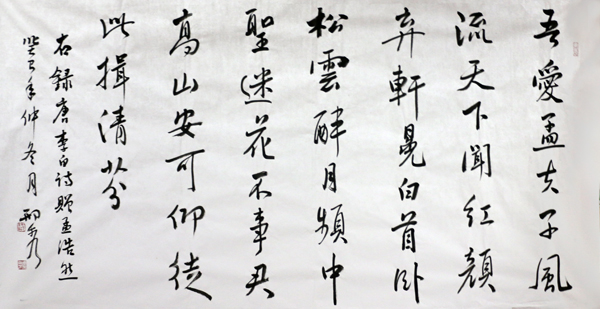 吾愛孟夫子風
流天下聞紅顏
弃軒冕白首卧
松雲醉月頻中
聖迷花不事君
高山安可仰徒
此揖清芬
右錄唐李白诗赠孟浩然
癸巳年仲冬月